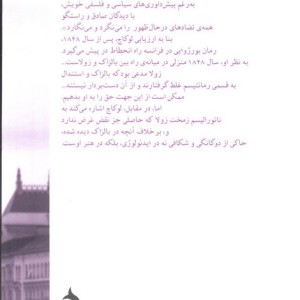 به‌رغم پیش‌داوری‌های سیاسی و فلسفی خویش،
با دیدگان صادق و راستگو
همه‌ی تضادهای درحال‌ظهور را می‌نگرد و می‌نگارد.»
بنا به ارزیابی لوکاچ، پس از سال ۱۸۴۸،
رمان بورژوایی در فرانسه راه انحطاط در پیش می‌گیرد.
به نظر او، سال ۱۸۴۸ منزلی در میانه‌ی راه بین بالزاک و زولاست...
زولا مدعی بود که بالزاک و استندال
به قسمی رمانتیسم غلط گرفتارند و از آن دست‌بردار نیستند...
ممکن است از این جهت حق را به او بدهیم.
اما، در مقابل، لوکاچ اشاره می‌کند به
ناتورالیسم زمخت زولا که حاصلی جز نقض غرض ندارد
و، برخلاف آنچه در بالزاک دیده شده،
حاکی از دوگانگی و شکافی نه در ایدئولوژی، بلکه در هنر اوست.